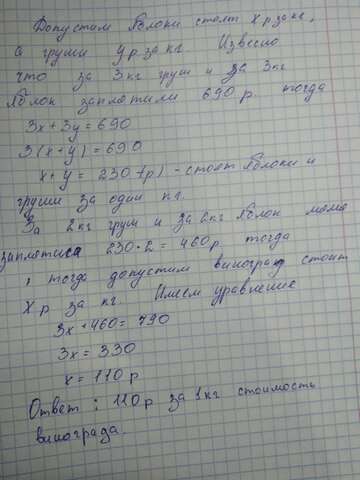 Допустим яблоки стоят х р за кг,
а груши у р за кг. Извесно
что за 3 кг груш и за 3 кг
яблок заплотили 690 р. тогда
3х + 3у = 690
3(х + у) = 690
х + у = 230 (р) - стоят яблоки и
груши за один кг.
За 2 кг груш и за 2 кг яблок мама
заплотила 230 · 2 = 460 р. тогда
, тогда допустим виноград стоит
Х р за кг. Имеем уравнение
3х + 460 = 790
3х = 330
х = 110 р
Ответ : 110 р за 1 кг стоимость
винограда.